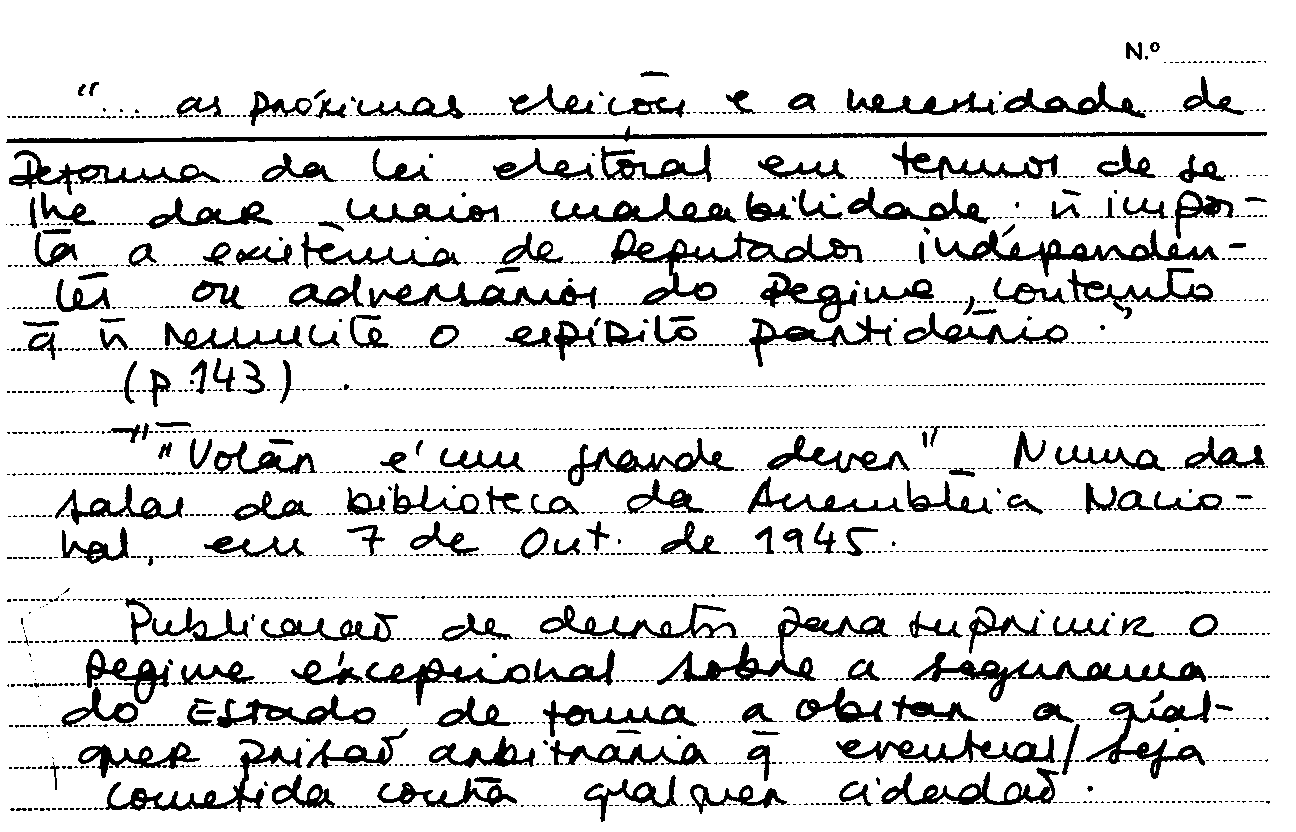 N.º
"... as próximas eleições e a necessidade de
Reforma da lei eleitoral em termos de se
lhe dar maior maleabilidade. ñ impor-
ta a existência de Deputados independen-
tes ou adversários do Regime, contanto
q̄ ñ ressuscite o espírito partidário."
(p. 143).
""Votar é um grande dever" _ Numa das
salas da biblioteca da Assembleia Nacio-
nal, em 7 de Out. de 1945.
Publicação de decretos para suprimir o
Regime excepcional sobre a segurança
do Estado de forma a obstar a qual-
quer prisão arbitrária q̄ eventual/ seja
cometida contra qualquer cidadão.